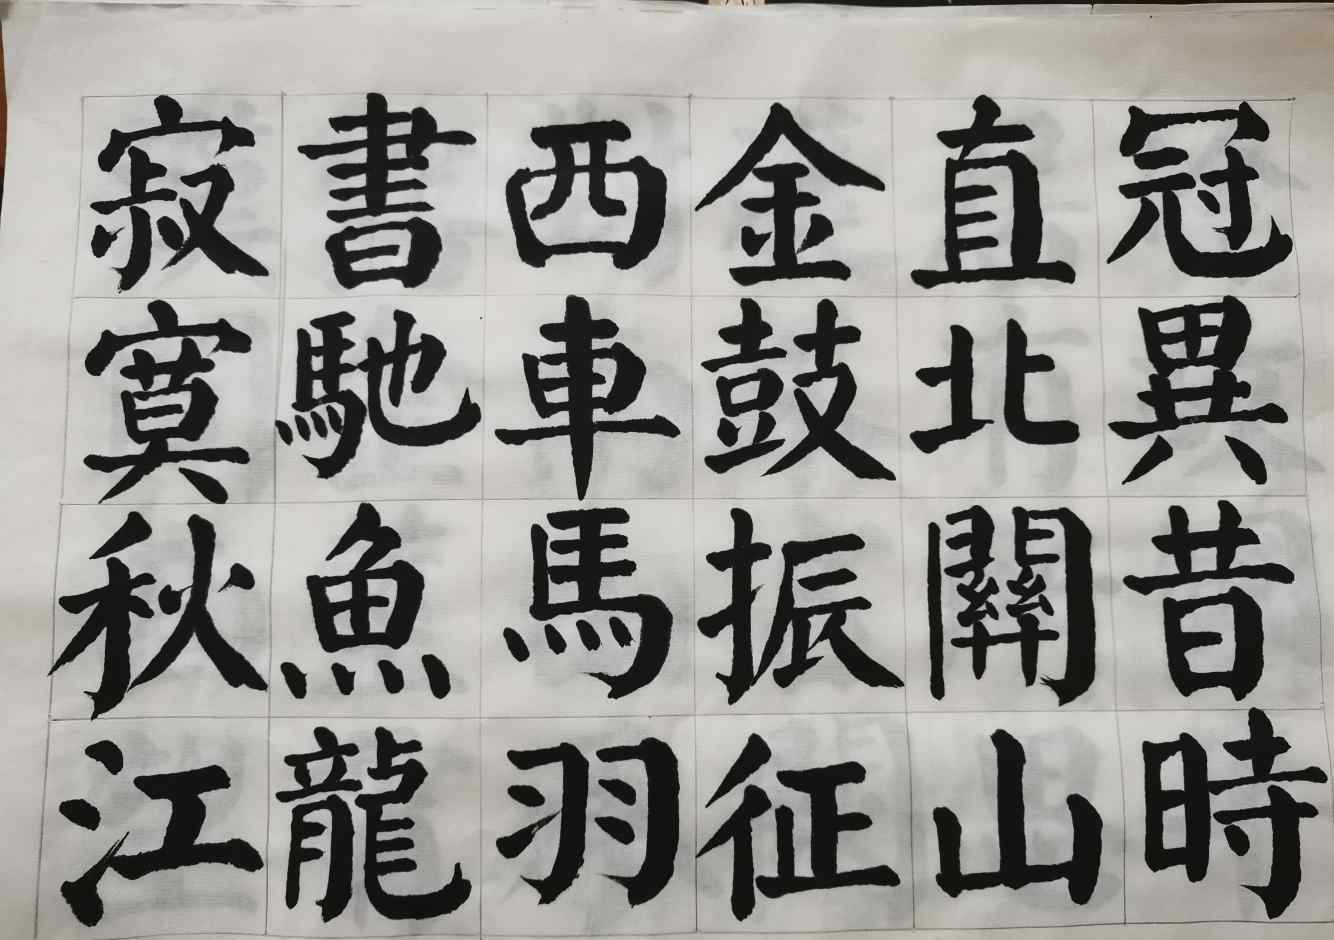 冠異昔時
直北關山
金鼓振征
西車馬羽
書馳魚龍
寂寞秋江